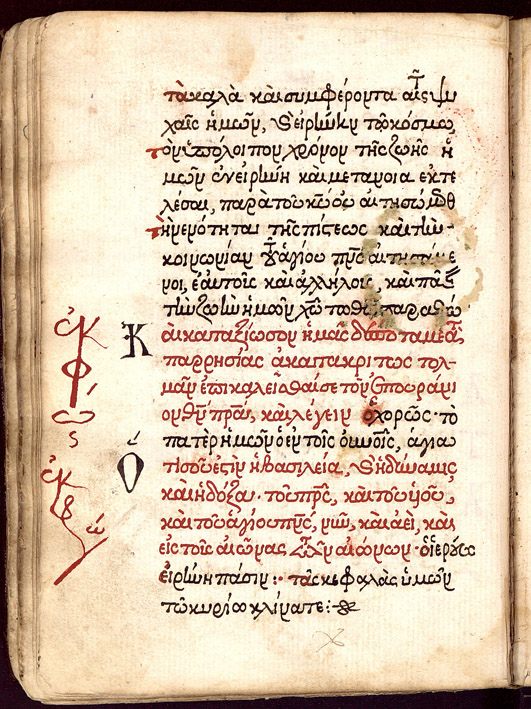 τὰ καλὰ καὶ συμφέροντα ταῖς ψυ
χαῖς ἡμῶν, κ εἰρήνην τῶ κόσμω,
τὸν ὑπόλοιπον χρόνον τῆς ζωῆς ἡ
μῶν ἐν εἰρήνη καὶ μετανοία ἐκτε
λέσαι, παρὰ τοῦ κυ
τὴν ἑνότητα τῆς πίστεως καὶ τὴν
κοινωνίαν τοῦ ἁγίου πνς αἰτησάμε
νοι, ἑαυτοὺς καὶ ἀλλήλους, καὶ πᾶσ
τὴν ζωὴν ἡμῶν χω τω θω παραθώ
Καὶ καταξίωσον ἡμᾶς δέσποτα μετὰ
παρρησίας ἀκατακρίτως τολ
μᾶν ἐπικαλεῖσθαί σε τὸν ἐπουράνι
ον θν πρα, καὶ λέγειν ὁ χορὸς τὸ
πάτερ ἡμῶν ὁ ἐν τοῖς οὐνοῖς, ἁγια
Ὅτι σοῦ ἐστὶν ἡ βασιλεία, κ ἡ δύναμις
καὶ ἡ δόξα τοῦ πρς, καὶ τοῦ υἱοῦ,
καὶ τοῦ ἁγίου πνς, νῦν, καὶ ἀεὶ, καὶ
εἰς τοὺς αἰῶνας τῶν αἰώνων ὁ ἱερεὺς
εἰρήνη πᾶσιν : τὰς κεφαλὰς ὑμῶν
τῶ κυρίω κλίνατε :